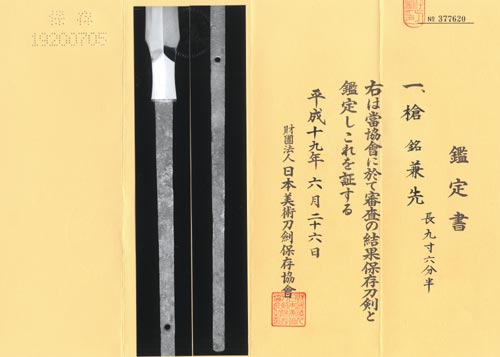 No 377620
鑑定書
一、槍 銘 兼先
長 九寸六分半
右は當協會に於て審査の結果保存刀剣と
鑑定しこれを証する
平成十九年六月二十六日
財團法人 日本美術刀劍保存協會
保存
19200705